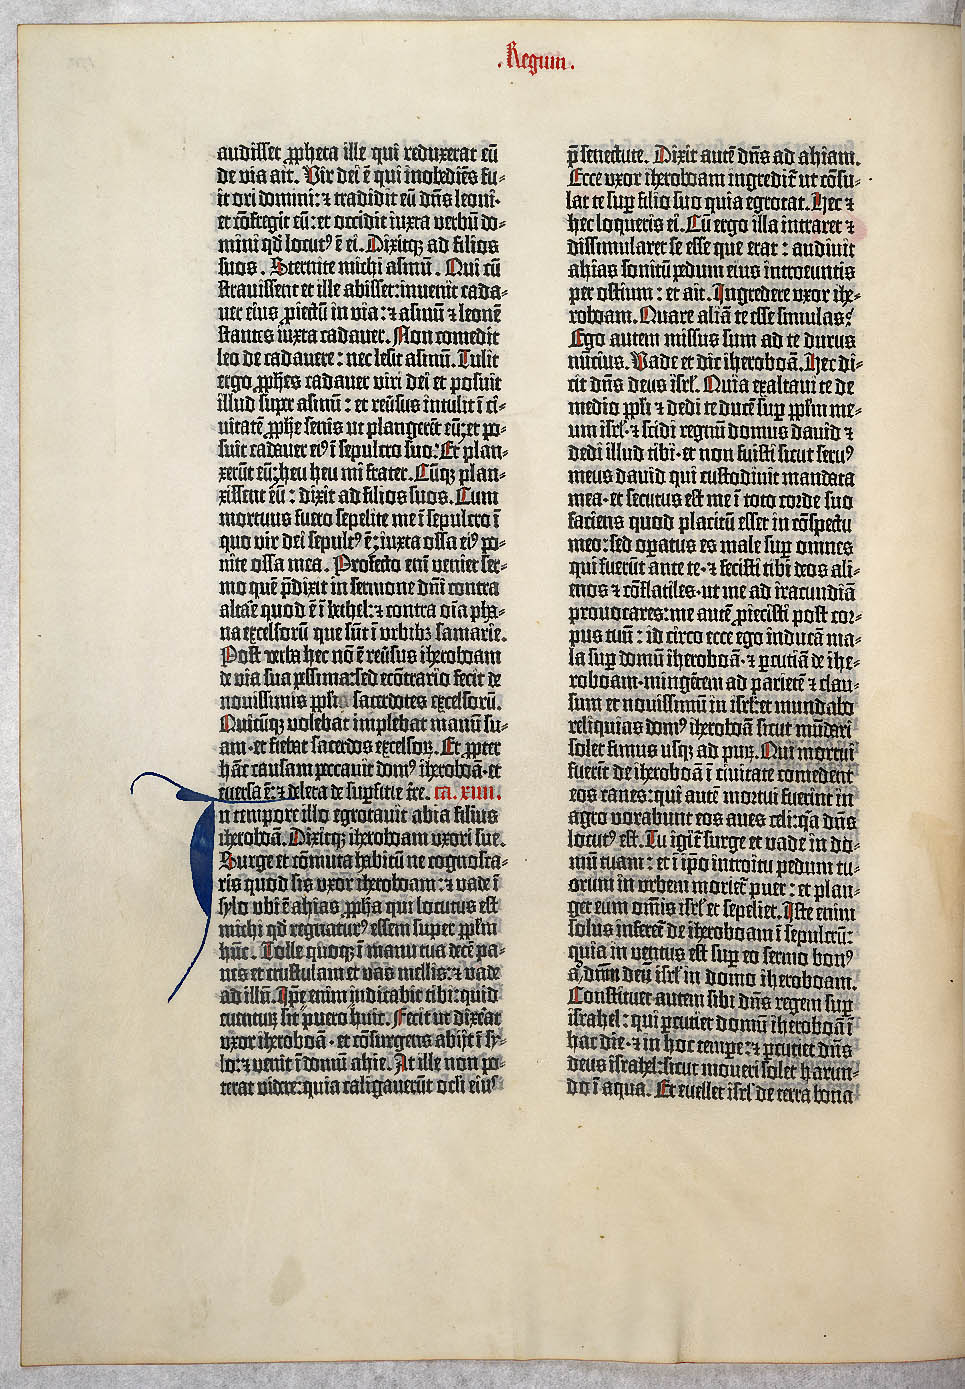 . Regum .
audisset ꝓpheta ille qui reduxerat eū
de via ait. Vir dei ē qui inobediēs fu-
it ori domini: ⁊ tradidit eū dn̄s leoni·
et cōfregit eū: et occidit iuxta verbū do-
mini qđ locutꝰ ē ei. Dixitqꝫ ad filios
suos. Sternite michi asinū. Qui cū
strauissent et ille abisset: inuenit cada-
uer eius ꝓiectū in via: ⁊ asinū ⁊ leonē
stantes iuxta cadauer. Non comedit
leo de cadauere: nec lesit asinū. Tulit
ergo ꝓphēs cadauer viri dei et posuit
illud super asinū: et reūsus intulit ī ci-
uitatē ꝓphe senis ut plangerēt eū: et po-
suit cadauer eiꝰ ī sepulcro suo: Et plan-
xerūt eū: heu heu mi frater. Cūqꝫ plan-
xissent eū: dixit ad filios suos. Cum
mortuus fuero sepelite me ī sepulcro ī
quo vir dei sepultꝰ ē: iuxta ossa eiꝰ po-
nite ossa mea. Profecto enī veniet ser-
mo quē p̄dixit in sermone dn̄i contra
altare quod ē ī bethel: ⁊ contra oīa pha-
na excelsorū que sūt ī vrbibꝫ samarie.
Post verba hec nō ē reūsus iheroboam
de via sua pessima: sed ecōtrario fecit de
nouissimis ppl̄i sacerdotes excelsorū.
Quicūqꝫ volebat implebat manū su-
am· et fiebat sacerdos excelsoꝝ. Et ꝓpter
hāc causam peccauit domꝰ iheroboā· et
euersa ē: ⁊ deleta de suꝑficie t̄re. ca. xiiii.
In tempore illo egrotauit abia filius
iheroboā. Dixitqꝫ iheroboam vxori sue.
Surge et cōmuta habitū ne cognosca-
ris quod sis vxor iheroboam: ⁊ vade ī
sylo vbi ē ahias ꝓpha qui locutus est
michi qđ regnaturꝰ essem super pplm̄
hūc. Tolle quoqꝫ ī manu tua decē pa-
nes et crustulam et vas mellis: ⁊ vade
ad illū. Ip̄e enim indicabit tibi: quid
euenturꝫ sit puero huic. Fecit ut dixerat
vxor iheroboā· et cōsurgens abijt ī sy-
lo: ⁊ venit ī domū ahie. At ille non po-
terat videre: quia caligauerūt ocli eiꝰ
p̄ senectute. Dixit autē dn̄s ad ahiam.
Ecce vxor iheroboam ingredit̄ ut cōsu-
lat te suꝑ filio suo quia egrotat. Hec ⁊
hec loqueris ei. Cū ergo illa intraret ⁊
dissimularet se esse que erat: audiuit
ahias sonitū pedum eius introeuntis
per ostium: et ait. Ingredere vxor ihe-
roboam. Quare aliā te esse simulas?
Ego autem missus sum ad te durus
nūcius. Vade et dic iheroboā. Hec di-
cit dn̄s deus isrl̄. Quia exaltaui te de
medio ppl̄i ⁊ dedi te ducē suꝑ pplm̄ me-
um isrl̄· ⁊ scidi regnū domus dauid ⁊
dedi illud tibi· et non fuisti sicut seruꝰ
meus dauid qui custodiuit mandata
mea· et secutus est me ī toto corde suo
faciens quod placitū esset in cōspectu
meo: sed oꝑatus es male suꝑ omnes
qui fuerūt ante te· ⁊ fecisti tibi deos ali-
enos ⁊ cōflatiles· ut me ad iracundiā
prouocares: me autē ꝓiecisti post cor-
pus tuū: id circo ecce ego inducā ma-
la suꝑ domū iheroboā· ⁊ ꝑcutiā de ihe-
roboam· mingētem ad parietē ⁊ clau-
sum et nouissimū in isrl̄: et mundabo
reliquias domꝰ iheroboā sicut mūdari
solet fimus usqꝫ ad puꝝ. Qui mortui
fuerīt de iheroboā ī ciuitate comedent
eos canes: qui autē mortui fuerint in
agro vorabunt eos aues celi: qa dn̄s
locutꝰ est. Tu igit̄ surge et vade in do-
mū tuam: et ī ip̄o introitu pedum tu-
orum in vrbem moriet̄ puer: et plan-
get eum om̄is isrl̄ et sepeliet. Iste enim
solus inferet̄ de iheroboam ī sepulcrū:
quia in ventus est suꝑ eo sermo bonꝰ
a dn̄m deū isrl̄ in domo iheroboam.
Constituet autem sibi dn̄s regem suꝑ
israhel: qui ꝑcutiet domū iheroboā ī
hac die· ⁊ in hoc tempe: ⁊ ꝑcutiet dn̄s
deus israhel: sicut moueri solet harun-
do ī aqua. Et euellet isrl̄ de terra bona